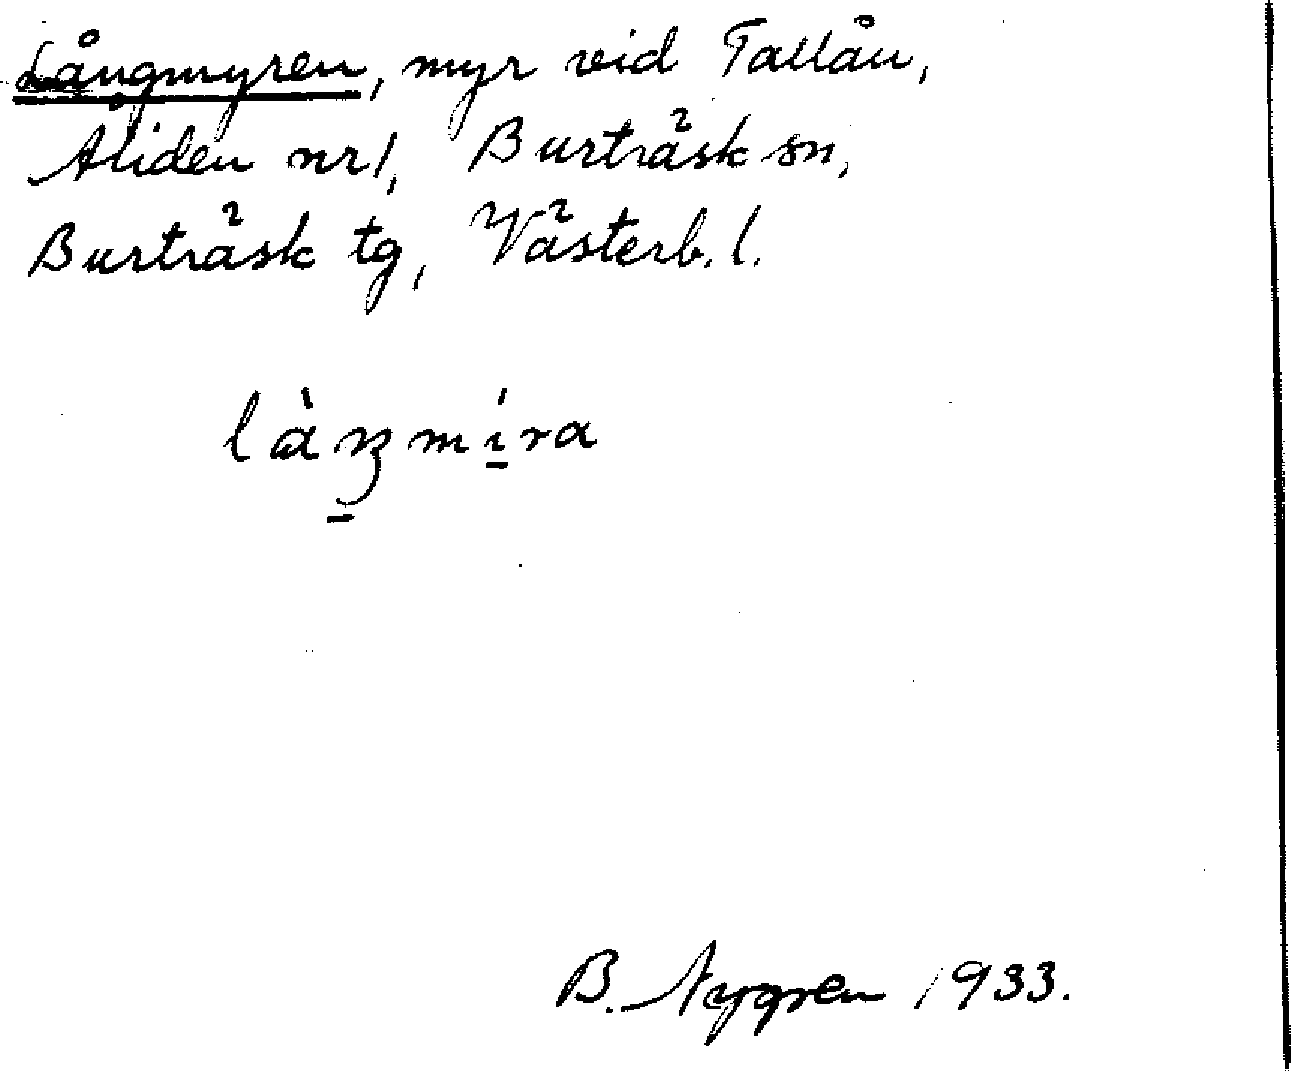 Långmyren, myr vid Tallån,
Åliden nr 1, Burträsk sn,
Burträsk tg, Västerb. l.
làŋmíra
B. Nygren 1933.